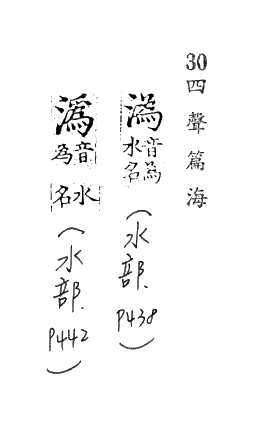 30四聲篇海
潙音為水名(水部.P438)
溈音為水名(水部.P442)